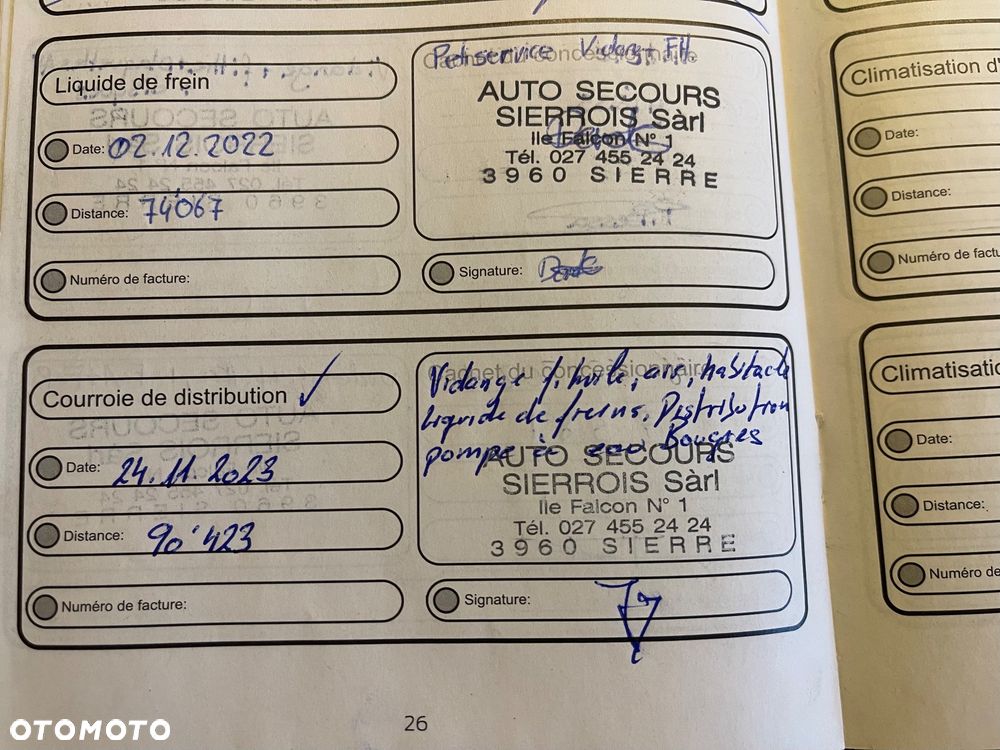 Petit service Vidange F.H.
Cachet du concessionnaire
Liquide de frein
AUTO SECOURS
SIERROIS Sàrl
Ile Falcon N° 1
Tél. 027 455 24 24
3960 SIERRE
Date: 02.12.2022
Distance: 74'067
Numéro de facture:
Signature:
Courroie de distribution ✓
Cachet du concessionnaire
Vidange f. huile, air, habitacle
Liquide de freins, Distribution
pompe à eau Bougies
AUTO SECOURS
SIERROIS Sàrl
Ile Falcon N° 1
Tél. 027 455 24 24
3960 SIERRE
Date: 24.11.2023
Distance: 90'423
Numéro de facture:
Signature:
26
Climatisation d'
Date:
Distance:
Numéro de factu
Climatisatio
Date:
Distance:
Numéro de
OTOMOTO